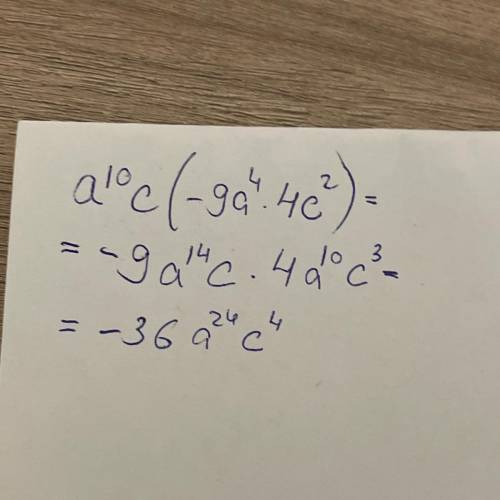 a¹⁰c(-9a⁴·4c²)=
=-9a¹⁴c·4a¹⁰c³-
=-36a²⁴c⁴